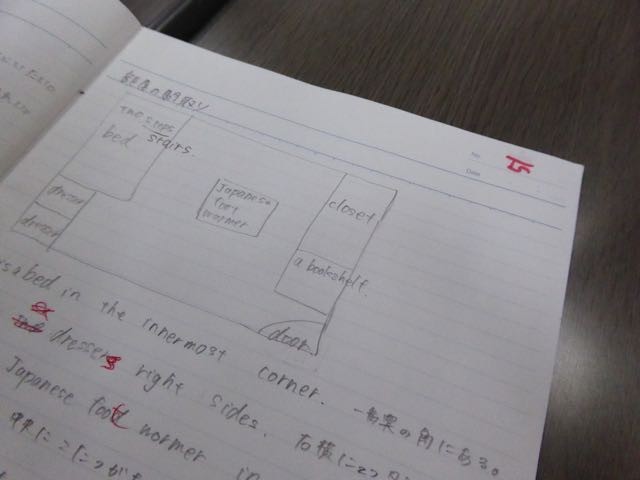 No.
15
Date
部屋の間取り
The steps
stairs.
bed
Japanese
foot
wormer
closet
dresser
dresser
a bookshelf.
door
is a bed in the innermost corner. 一番奥の角にある。
dressers right sides. 右横に2つ
Japanese foot wormer in
中央にこたつが